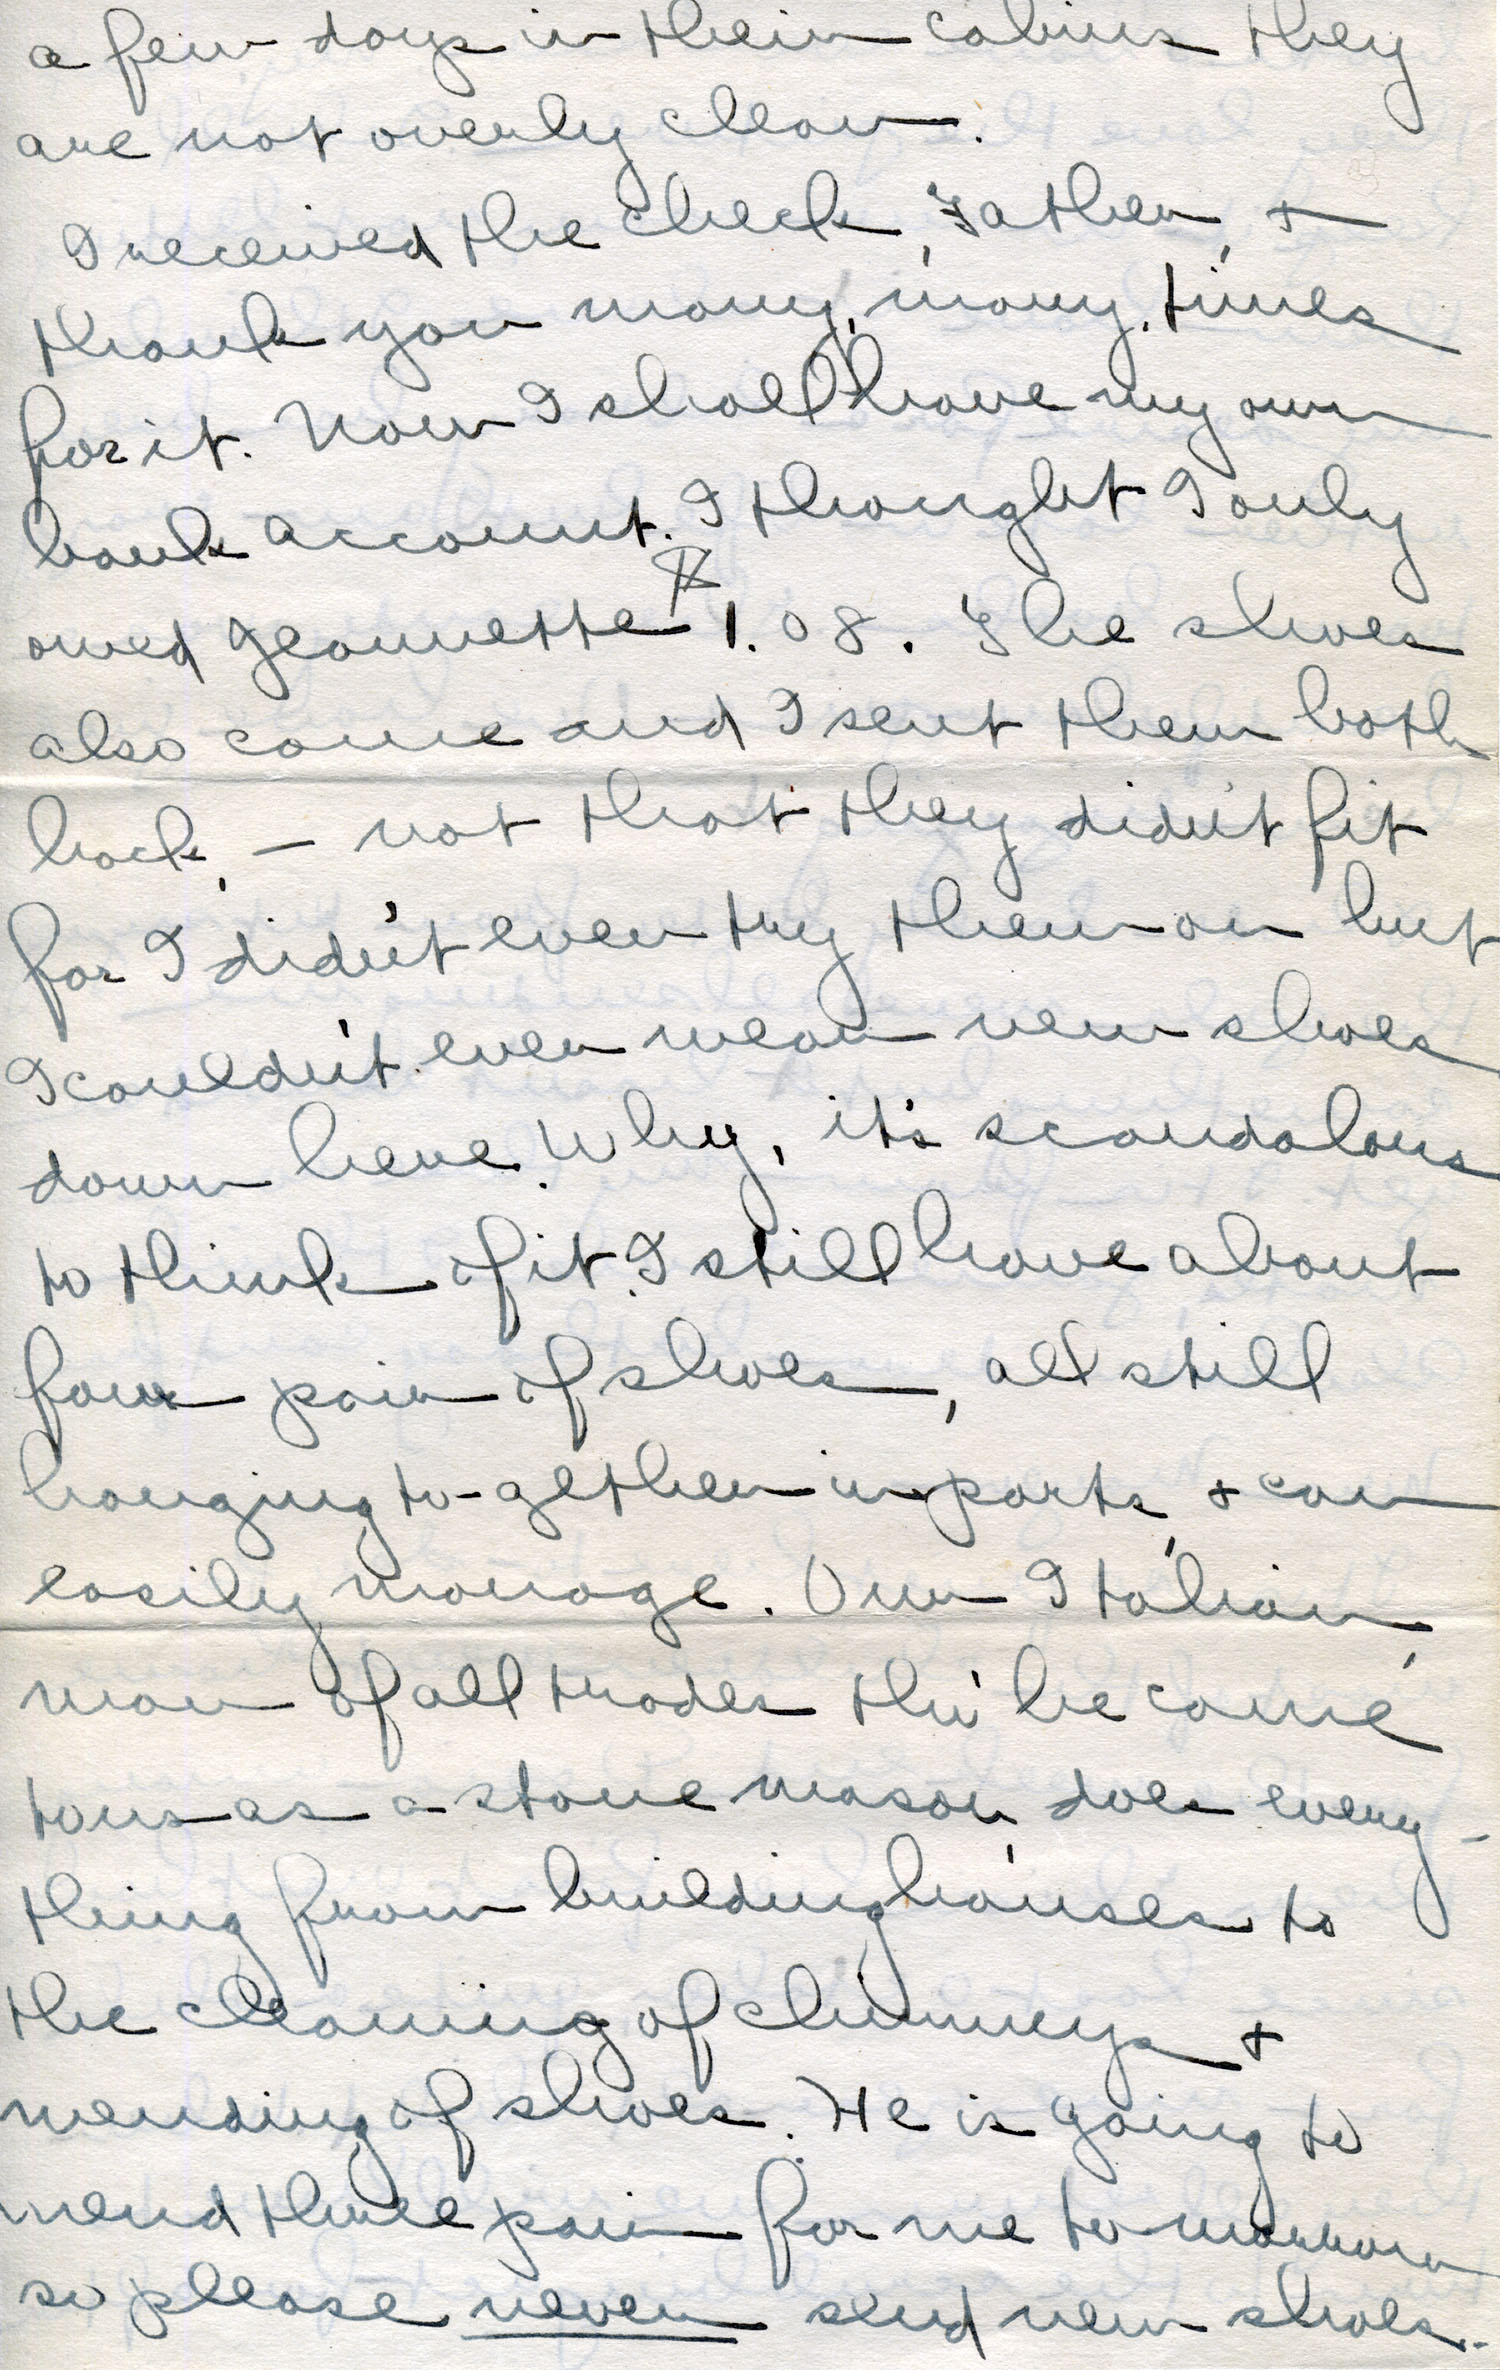 a few days in their cabins they
are not overly clean.
I received the check, Father, +
thank you many, many, times
for it. Now I shall have my own
bank account. I thought I only
owed Jeannette $1.08. The shoes
also came and I sent them both
back, — not that they didn't fit
for I didn't even try them on but
I couldn't even wear new shoes
down here. Why, it's scandalous
to think of it. I still have about
four pair of shoes, all still
hanging to-gether in parts, + can
easily manage. Our Italian,
man of all trades tho' he came
to us as a stone mason, does every-
thing from building houses to
the cleaning of chimneys +
mending of shoes. He is going to
mend three pair for me to-morrow
so please never send new shoes.-